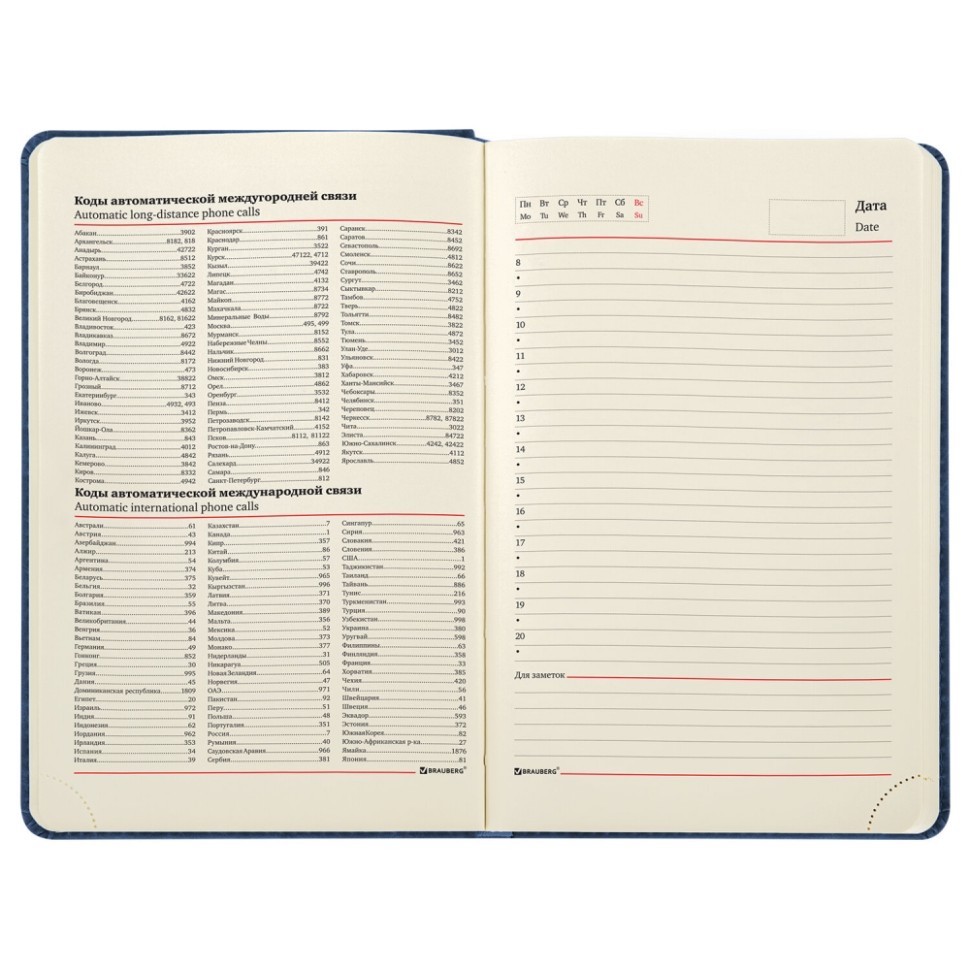 Коды автоматической междугородней связи
Automatic long-distance phone calls
Абакан 3902
Архангельск 8182, 818
Анадырь 42722
Астрахань 8512
Барнаул 3852
Байконур 33622
Белгород 4722
Биробиджан 42622
Благовещенск 4162
Брянск 4832
Великий Новгород 8162, 81622
Владивосток 423
Владикавказ 8672
Владимир 4922
Волгоград 8442
Вологда 8172
Воронеж 473
Горно-Алтайск 38822
Грозный 8712
Екатеринбург 343
Иваново 4932, 493
Ижевск 3412
Иркутск 3952
Йошкар-Ола 8362
Казань 843
Калининград 4012
Калуга 4842
Кемерово 3842
Киров 8332
Кострома 4942
Красноярск 391
Краснодар 861
Курган 3522
Курск 47122, 4712
Кызыл 39422
Липецк 4742
Магадан 4132
Магас 8734
Майкоп 8772
Махачкала 8722
Минеральные Воды 8792
Москва 495, 499
Мурманск 8152
Набережные Челны 8552
Нальчик 8662
Нижний Новгород 831
Новосибирск 383
Омск 3812
Орел 4862
Оренбург 3532
Пенза 8412
Пермь 342
Петрозаводск 8142
Петропавловск-Камчатский 4152
Псков 8112, 81122
Ростов-на-Дону 863
Рязань 4912
Салехард 34922
Самара 846
Санкт-Петербург 812
Саранск 8342
Саратов 8452
Севастополь 8692
Смоленск 4812
Сочи 8622
Ставрополь 8652
Сургут 3462
Сыктывкар 8212
Тамбов 4752
Тверь 4822
Тольятти 8482
Томск 3822
Тула 4872
Тюмень 3452
Улан-Удэ 3012
Ульяновск 8422
Уфа 347
Хабаровск 4212
Ханты-Мансийск 3467
Чебоксары 8352
Челябинск 351
Череповец 8202
Черкесск 8782, 87822
Чита 3022
Элиста 84722
Южно-Сахалинск 4242, 42422
Якутск 4112
Ярославль 4852
Коды автоматической международной связи
Automatic international phone calls
Австрали 61
Австрия 43
Азербайджан 994
Алжир 213
Аргентина 54
Армения 374
Беларусь 375
Бельгия 32
Болгария 359
Бразилия 55
Ватикан 396
Великобритания 44
Венгрия 36
Вьетнам 84
Германия 49
Гонконг 852
Греция 30
Грузия 995
Дания 45
Доминиканская республика 1809
Египет 20
Израиль 972
Индия 91
Индонезия 62
Иордания 962
Ирландия 353
Испания 34
Италия 39
Казахстан 7
Канада 1
Кипр 357
Китай 86
Колумбия 57
Куба 53
Кувейт 965
Кыргызстан 996
Латвия 371
Литва 370
Македония 389
Мальта 356
Мексика 52
Молдова 373
Монако 377
Нидерланды 31
Никарагуа 505
Новая Зеландия 64
Норвегия 47
ОАЭ 971
Пакистан 92
Перу 51
Польша 48
Португалия 351
Россия 7
Румыния 40
Саудовская Аравия 966
Сербия 381
Сингапур 65
Сирия 963
Словакия 421
Словения 386
США 1
Таджикистан 992
Таиланд 66
Тайвань 886
Тунис 216
Туркменистан 993
Турция 90
Узбекистан 998
Украина 380
Уругвай 598
Филиппины 63
Финляндия 358
Франция 33
Хорватия 385
Чехия 420
Чили 56
Швейцария 41
Швеция 46
Эквадор 593
Эстония 372
Южная Корея 82
Южно-Африканская р-ка 27
Ямайка 1876
Япония 81
BRAUBERG®
Пн Вт Ср Чт Пт Сб Вс
Mo Tu We Th Fr Sa Su
Дата
Date
8
9
10
11
12
13
14
15
16
17
18
19
20
Для заметок
BRAUBERG®